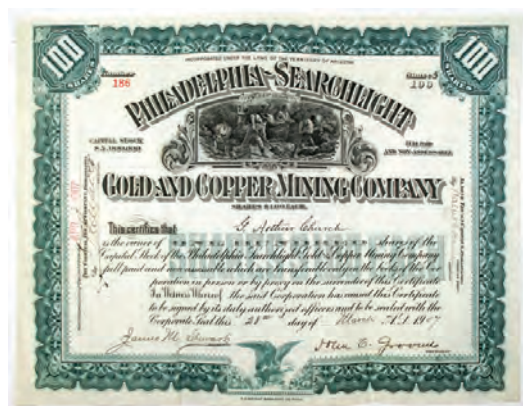 INCORPORATED UNDER THE LAWS OF THE TERRITORY OF ARIZONA
100 SHARES
Number
186
Shares
100
100 SHARES
PHILADELPHIA-SEARCHLIGHT
CAPITAL STOCK
FULL PAID
AND NON-ASSESSABLE
GOLD AND COPPER MINING COMPANY
SHARES $1.00 EACH
This certifies that G. Arthur Church
is the owner of shares of the
Capital Stock of the Philadelphia Searchlight Gold & Copper Mining Company
full paid and non assessable which are transferable only on the books of the Cor
poration in person or by proxy on the surrender of this Certificate
In Witness Whereof the said Corporation has caused this Certificate
to be signed by its duly authorized officers and to be sealed with the
Corporate Seal this 28th day of March A.D. 1907
James M.
John E.